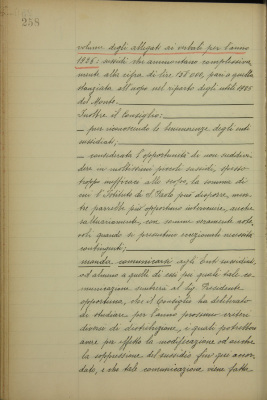 258
volume degli allegati ai verbali per l'anno
1936: sussidi che ammontano complessiva
mente alla cifra di lire 158.000, pari a quella
stanziata all'uopo nel riparto degli utili 1935
del Monte.
Inoltre il Consiglio:
— pur riconoscendo le benemerenze degli enti
sussidiati;
— considerata l'opportunità di non suddivi
dere in moltissimi piccoli sussidi, spesso
troppo inferiori allo scopo, la somma di
cui l'Istituto di S. Paolo può disporre, men
tre parrebbe più opportuno intervenire, anche
saltuariamente, con somme veramente note
voli quando si presentino eccezionali necessità
contingenti;
manda comunicarsi agli Enti sussidiati,
od almeno a quelli di essi per quali tale co
municazione sembrerà al Sig. Presidente
opportuna, che il Consiglio ha deliberato
di studiare per l'anno prossimo criteri
diversi di distribuzione, i quali potrebbero
avere per effetto la modificazione od anche
la soppressione del sussidio fino qui accor
dato, e che tale comunicazione viene fatta